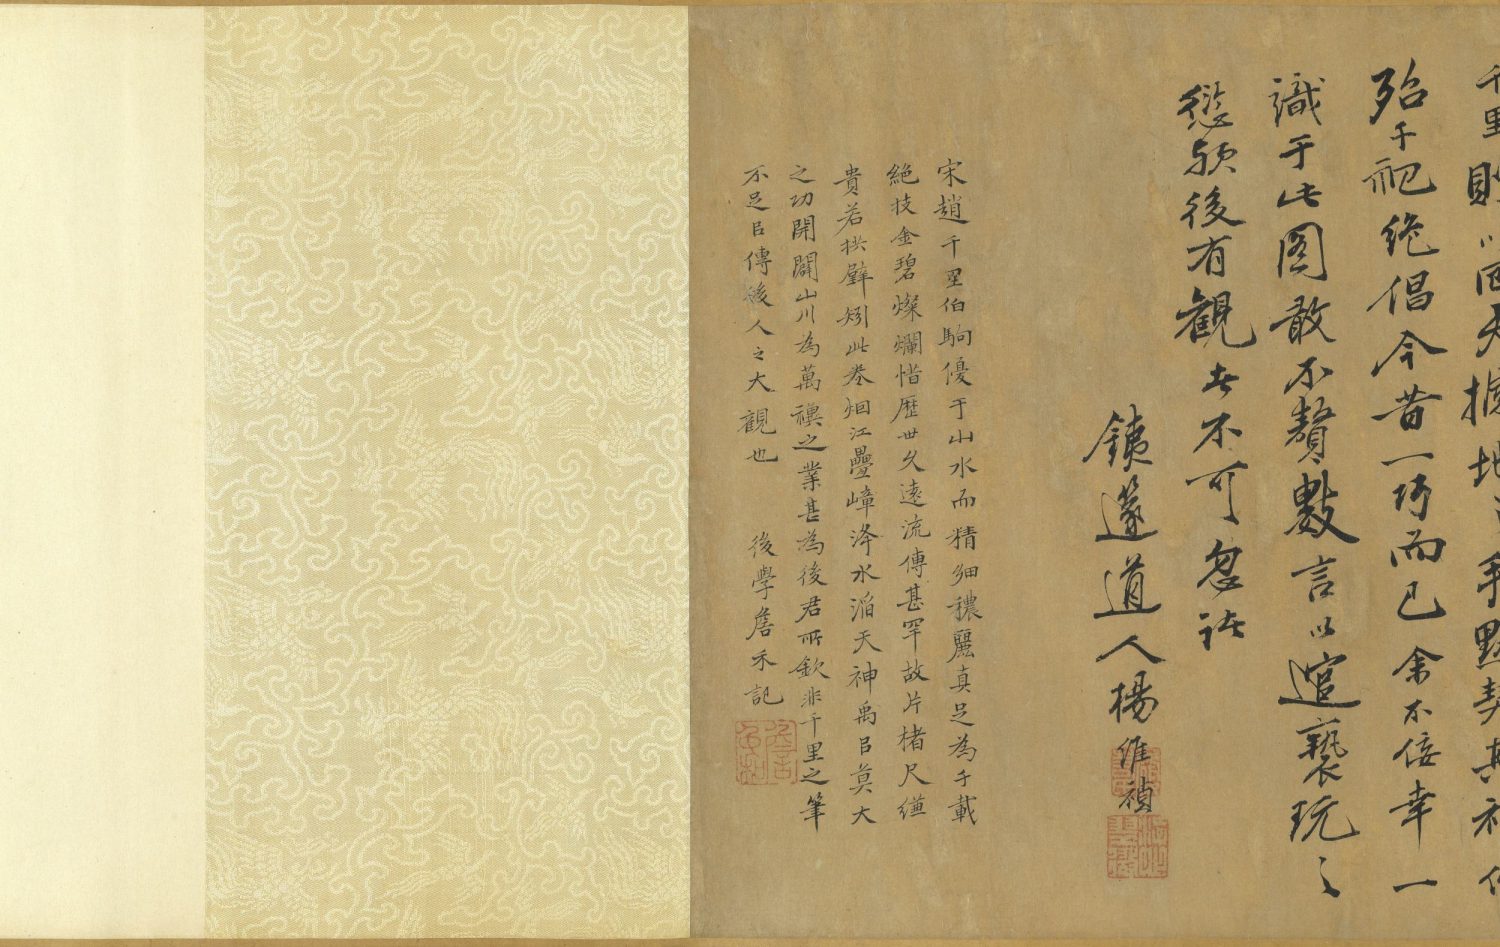 千里則以回天
手默契其神
殆千祀絶倡今昔一巧而已余不佞幸一
識于此图敢不贅數言以
褻玩之
愆願後有觀者不可忽諸
銕篴道人楊維禎
宋趙千里伯駒優于山水而精細穠麗真足為千載
絕技金碧燦爛惜歷世久遠流傳甚罕故片楮尺縑
貴若拱璧矧此卷烟江疊嶂浲水滔天神禹臣莫大
之功開闢山川為萬禩之業甚為後君所欽非千里之筆
不足以傳後人之大觀也 後學詹禾記